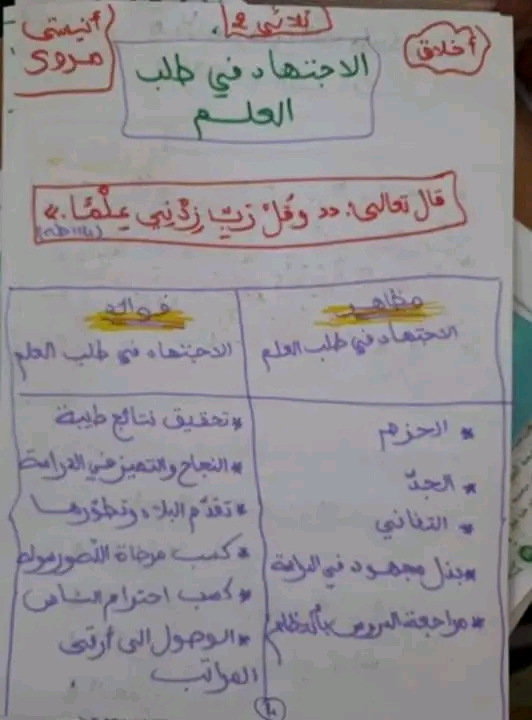 أخلاق
ثلاثي 2
أنيستي
مروى
الاجتهاد في طلب
العلم
قال تعالى: << وَقُلْ رَبِّ زِدْنِي عِلْمًا.>>
مظاهر
الاجتهاد في طلب العلم
* الحزم
* الجدّ
* التفاني
* بذل مجهود في الدراسة
* مراجعة الدروس بانتظام
فوائد
الاجتهاد في طلب العلم
* تحقيق نتائج طيبة
* النجاح والتميز في الدراسة
* تقدّم البلاد وتطوّرها
* كسب مرضاة اللّه ورسوله
* كسب احترام الناس
* الوصول الى أرقى
المراتب